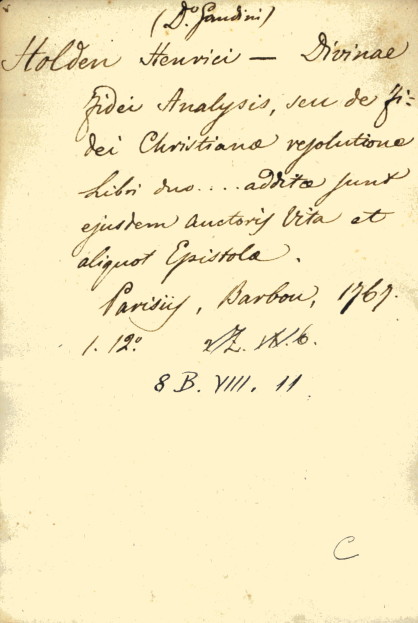 (D.º Gandini)
Holden Henrici — Divinae
fidei Analysis, seu de fi=
dei Christianæ resolutione
Libri duo.... additæ sunt
ejusdem auctoris Vita et
aliquot Epistolæ.
Parisiis, Barbou, 1767.
1. 12º. Z. 6.
8 B. VIII. 11
C